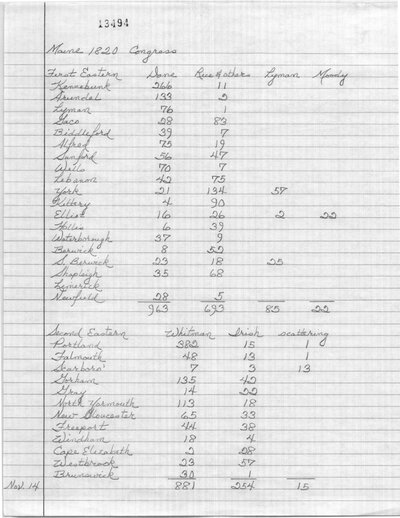 13494
Maine 1820 Congress
First Eastern Dane Rice & others Lyman Moody
Kennebunk 266 11
Arundel 133 2
Lyman 76 1
Saco 28 83
Biddeford 39 7
Alfred 75 19
Sanford 56 47
Wells 70 7
Lebanon 42 75
York 21 134 57
Kittery 4 90
Elliot 16 26 2 22
Hollis 6 39
Waterborough 37 9
Berwick 8 52
S. Berwick 23 18 25
Shapleigh 35 68
Limerick
Newfield 28 5
963 693 85 22
Second Eastern Whitman Irish scattering
Portland 382 15 1
Falmouth 48 13 1
Scarboro' 7 3 13
Gorham 135 42
Gray 14 22
North Yarmouth 113 18
New Gloucester 65 33
Freeport 44 38
Windham 18 4
Cape Elizabeth 2 28
Westbrook 23 57
Brunswick 30 1
Nov. 14 881 254 15